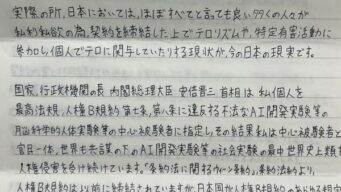 実際の所、日本においては、ほぼすべてと言っても良い99くの人々が
私的利益の為、契約を締結した上でテロリズムや、特定有害活動に
参加し、個人でテロに関与していたりする現状が、今の日本の現実です。
国家、行政機関の長 内閣総理大臣 安倍晋三首相は、私個人を
最高法規、人権B規約 第七条、第八条に違反する不法なAI開発実験等の
科学的人体実験等の中心被験者に指定し、その結果私は中心被験者と
官民一体、世界も共謀の下のAI開発実験等の社会実験の最中世界史上類を
人権侵害を受け続けています。「条約法に関するウィーン条約」、条約法約より、
人権B規約は以前に締結されていますが、日本国が人権B規約の